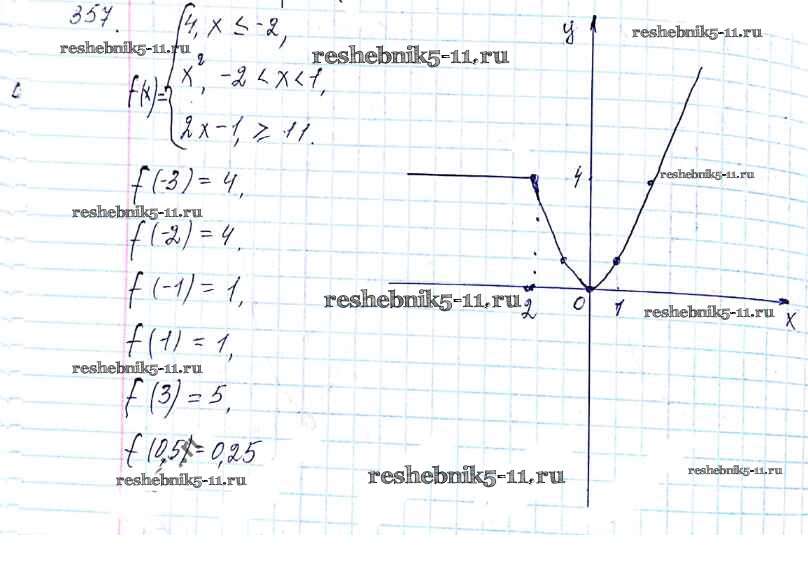 357.
4, x ≤ -2,
reshebnik5-11.ru
f(x)= x², -2 < x < 1,
2x-1, ≥ 11.
f(-3) = 4,
reshebnik5-11.ru
f(-2) = 4.
f(-1) = 1,
f(1) = 1,
reshebnik5-11.ru
f(3) = 5,
f(0,5)=0,25
reshebnik5-11.ru
y
reshebnik5-11.ru
reshebnik5-11.ru
4
reshebnik5-11.ru
reshebnik5-11.ru
2 0 1
reshebnik5-11.ru
x
reshebnik5-11.ru
reshebnik5-11.ru